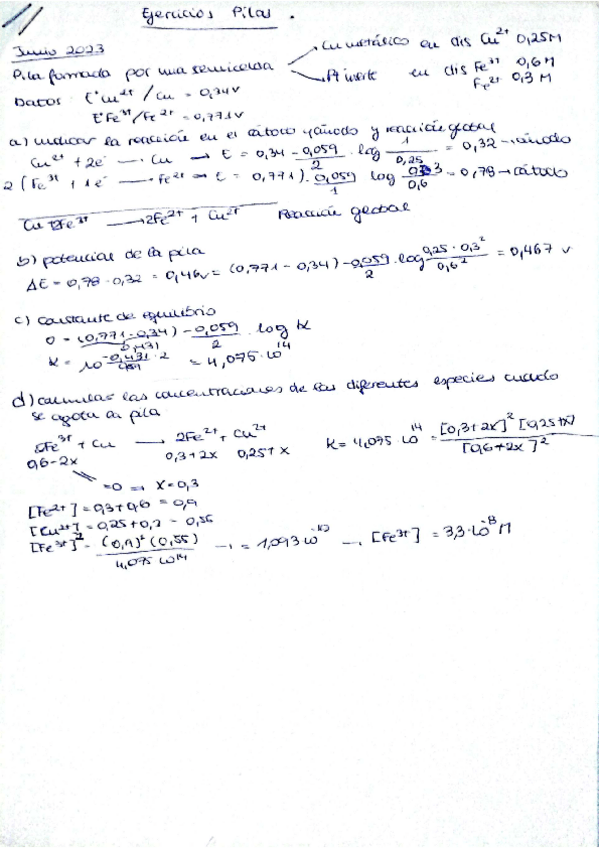 Ejercicios Pilas.
Junio 2023
Pila formada por una semicelda
Cu metálico en dis Cu²⁺ 0,25M
Pt inerte en dis Fe³⁺ 0,6M
Fe²⁺ 0,3 M
Datos: E°Cu²⁺/Cu = 0,34V
E°Fe³⁺/Fe²⁺ = 0,771V
a) indicar la reacción en el cátodo y ánodo y reacción global
Cu²⁺ + 2e⁻ → Cu → E = 0,34 - 0,059/2 · log 1/0,25 = 0,32 → ánodo
2 (Fe³⁺ + 1e⁻ → Fe²⁺ → E = 0,771) · 0,059/1 log 0,3/0,6 = 0,78 → cátodo
Cu + 2Fe³⁺ → 2Fe²⁺ + Cu²⁺ Reacción global
b) potencial de la pila
ΔE = 0,78 - 0,32 = 0,46V = (0,771 - 0,34) - 0,059/2 · log 0,25 · 0,3²/0,6² = 0,467 V
c) constante de equilibrio
0 = (0,771 - 0,34) - 0,059/2 · log K
0,431
K = 10^-0,431·2/0,059 = 4,075·10¹⁴
d) calcular las concentraciones de las diferentes especies cuando
se agota la pila
2Fe³⁺ + Cu → 2Fe²⁺ + Cu²⁺ K = 4,075·10¹⁴ = [0,3+2x]² [0,25+x]/[0,6+2x]²
0,6-2x 0,3+2x 0,25+x
=0 → x=0,3
[Fe²⁺] = 0,3 + 0,6 = 0,9
[Cu²⁺] = 0,25 + 0,3 = 0,55
[Fe³⁺]² = (0,9)² (0,55)/4,075·10¹⁴ → = 1,093·10⁻¹⁵ → [Fe³⁺] = 3,3·10⁻⁸ M